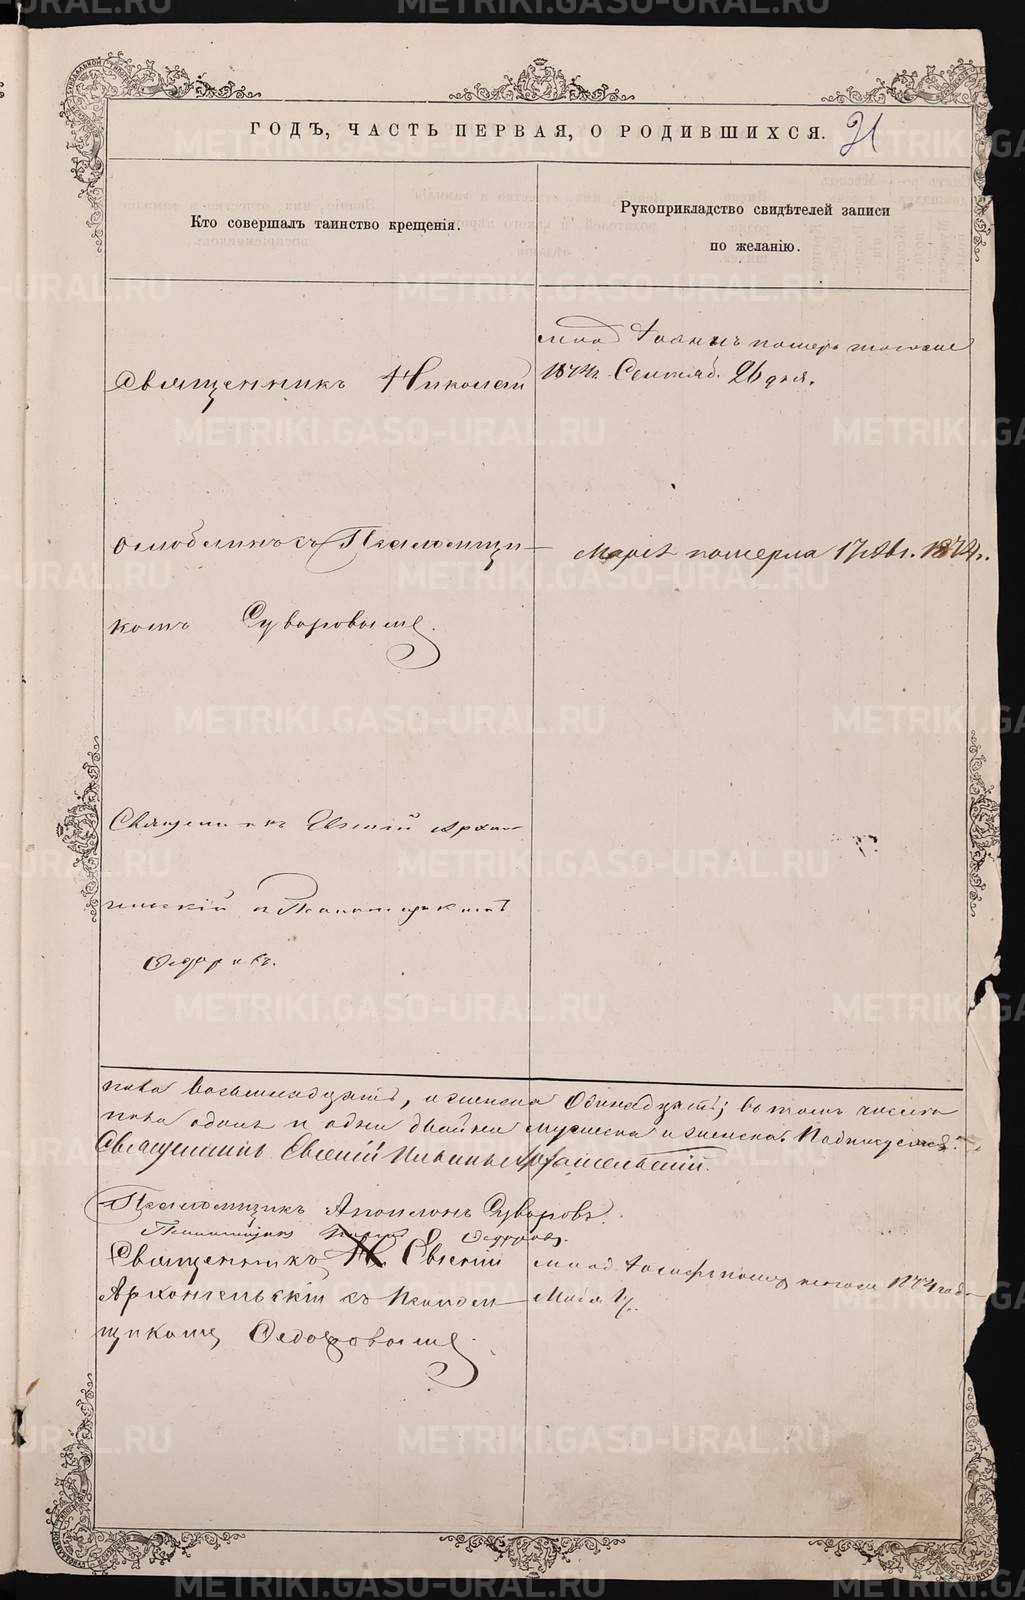 ГОДЪ, ЧАСТЬ ПЕРВАЯ, О РОДИВШИХСЯ. 21
Кто совершалъ таинство крещенія.
Рукоприкладство свидѣтелей записи
по желанію.
Священникъ Николай
Іоаннъ померъ
1874г. Сентяб. 26 дня.
съ Псаломщи-
комъ Суворовымъ.
Марія померла 17 Авг. 1874г.
Священникъ Евгеній Архан-
гельскій и Псаломщикъ
пола восьмнадцать, а женска одинадцать; въ томъ числѣ
пола одинъ и одни двойни мужеска и женска. Подписуемся:
Священникъ Евгеній Архангельскій.
Псаломщикъ Аполлонъ Суворовъ.
Псаломщикъ Федоровъ.
Священникъ Евгеній
Архангельскій съ Псалом-
щикомъ Федоровымъ.
1874 год-
METRIKI.GASO-URAL.RU